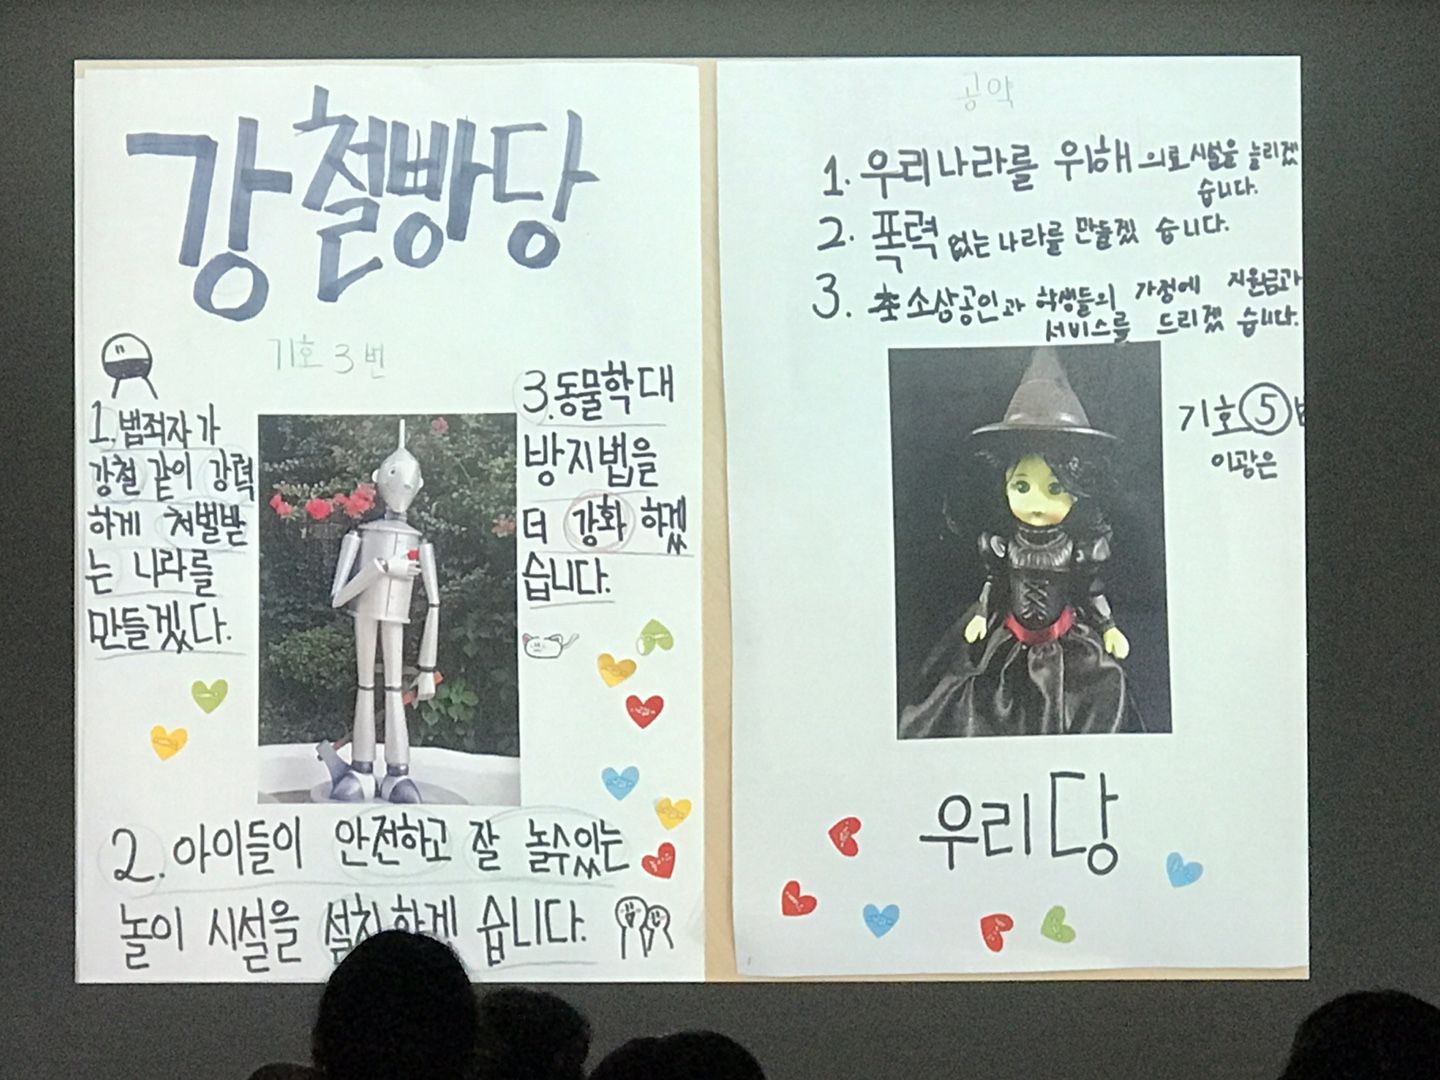 강철빵당
기호 3번
1. 범죄자가
강철 같이 강력
하게 처벌받
는 나라를
만들겠다.
3. 동물학대
방지법을
더 강화 하겠
습니다.
2. 아이들이 안전하고 잘 놀수있는
놀이 시설을 설치하겠습니다.
공약
1. 우리나라를 위해 의료시설을 늘리겠
습니다.
2. 폭력 없는 나라를 만들겠습니다.
3. 소상공인과 학생들의 가정에 지원금과
서비스를 드리겠습니다.
기호 5번
이광은
우리당